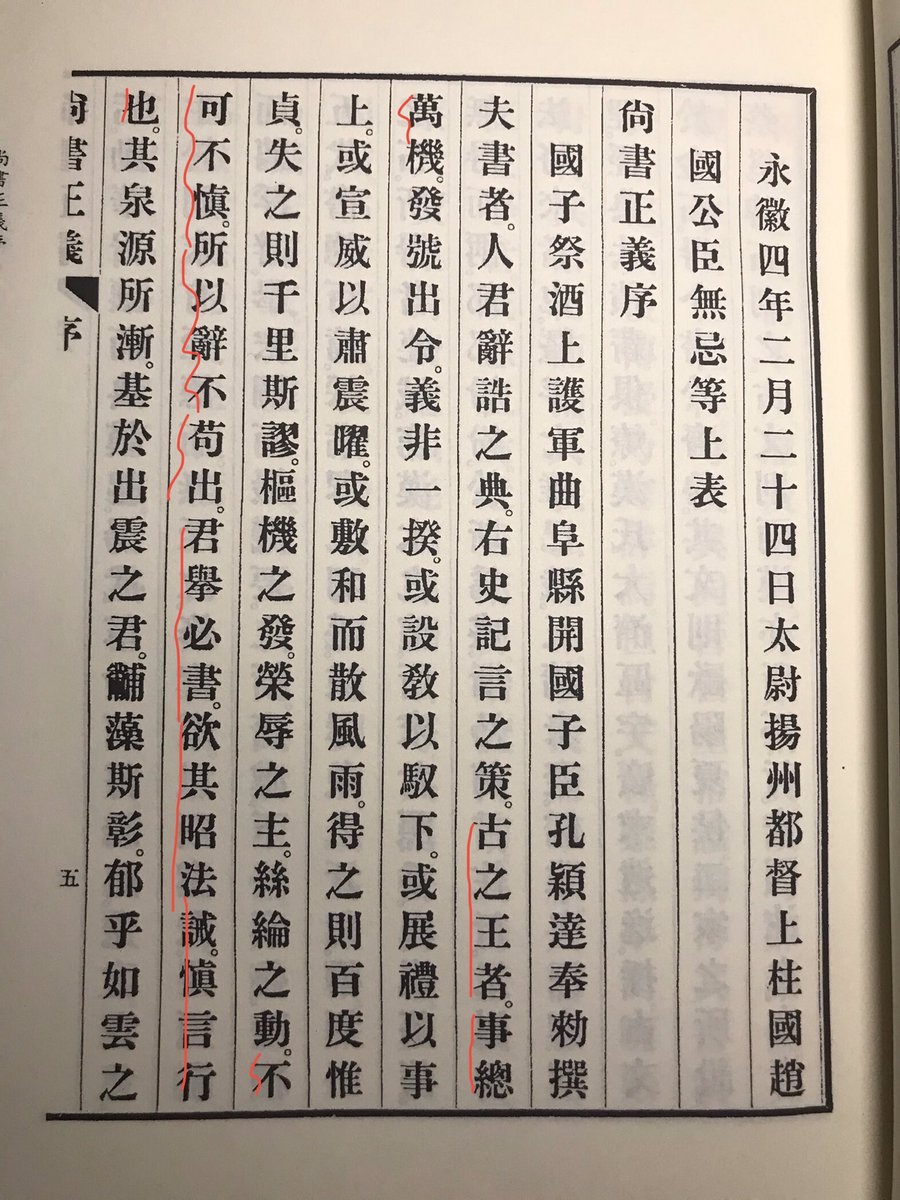 永徽四年二月二十四日太尉揚州都督上柱國趙
國公臣無忌等上表
尙書正義序
國子祭酒上護軍曲阜縣開國子臣孔穎達奉勑撰
夫書者。人君辭誥之典。右史記言之策。古之王者。事總
萬機。發號出令。義非一揆。或設敎以馭下。或展禮以事
上。或宣威以肅震曜。或敷和而散風雨。得之則百度惟
貞。失之則千里斯謬。樞機之發。榮辱之主。絲綸之動。不
可不愼。所以辭不苟出。君舉必書。欲其昭法誡。愼言行
也。其泉源所漸。基於出震之君。黼藻斯彰。郁乎如雲之
尙書正義
序
五